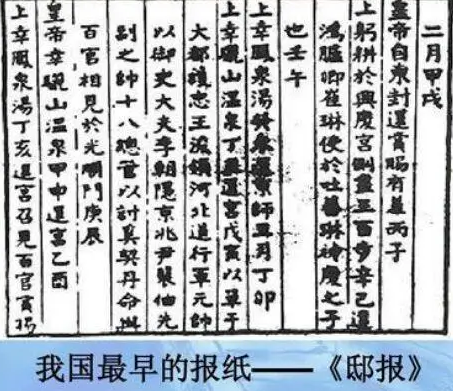 二月甲戌
皇帝自東封還賞賜有差丙子
上躬耕於興慶宫側盡三百步辛巳遣
鴻臚卿崔琳使於吐蕃琳神慶之子
也壬午
上幸鳳泉湯癸未還京師三月丁卯
上幸驪山温泉丁還宫戊寅以單于
大都護忠王浚領河北道行軍元帥
以御史大夫李朝隱京兆尹裴伷先
副之帥十八總管以討奚契丹命與
百官相見於光順門庚辰
皇帝幸驪山温泉甲申還宫乙酉
上幸鳳泉湯丁亥還宫召見百官賞賜
我国最早的报纸——《邸报》